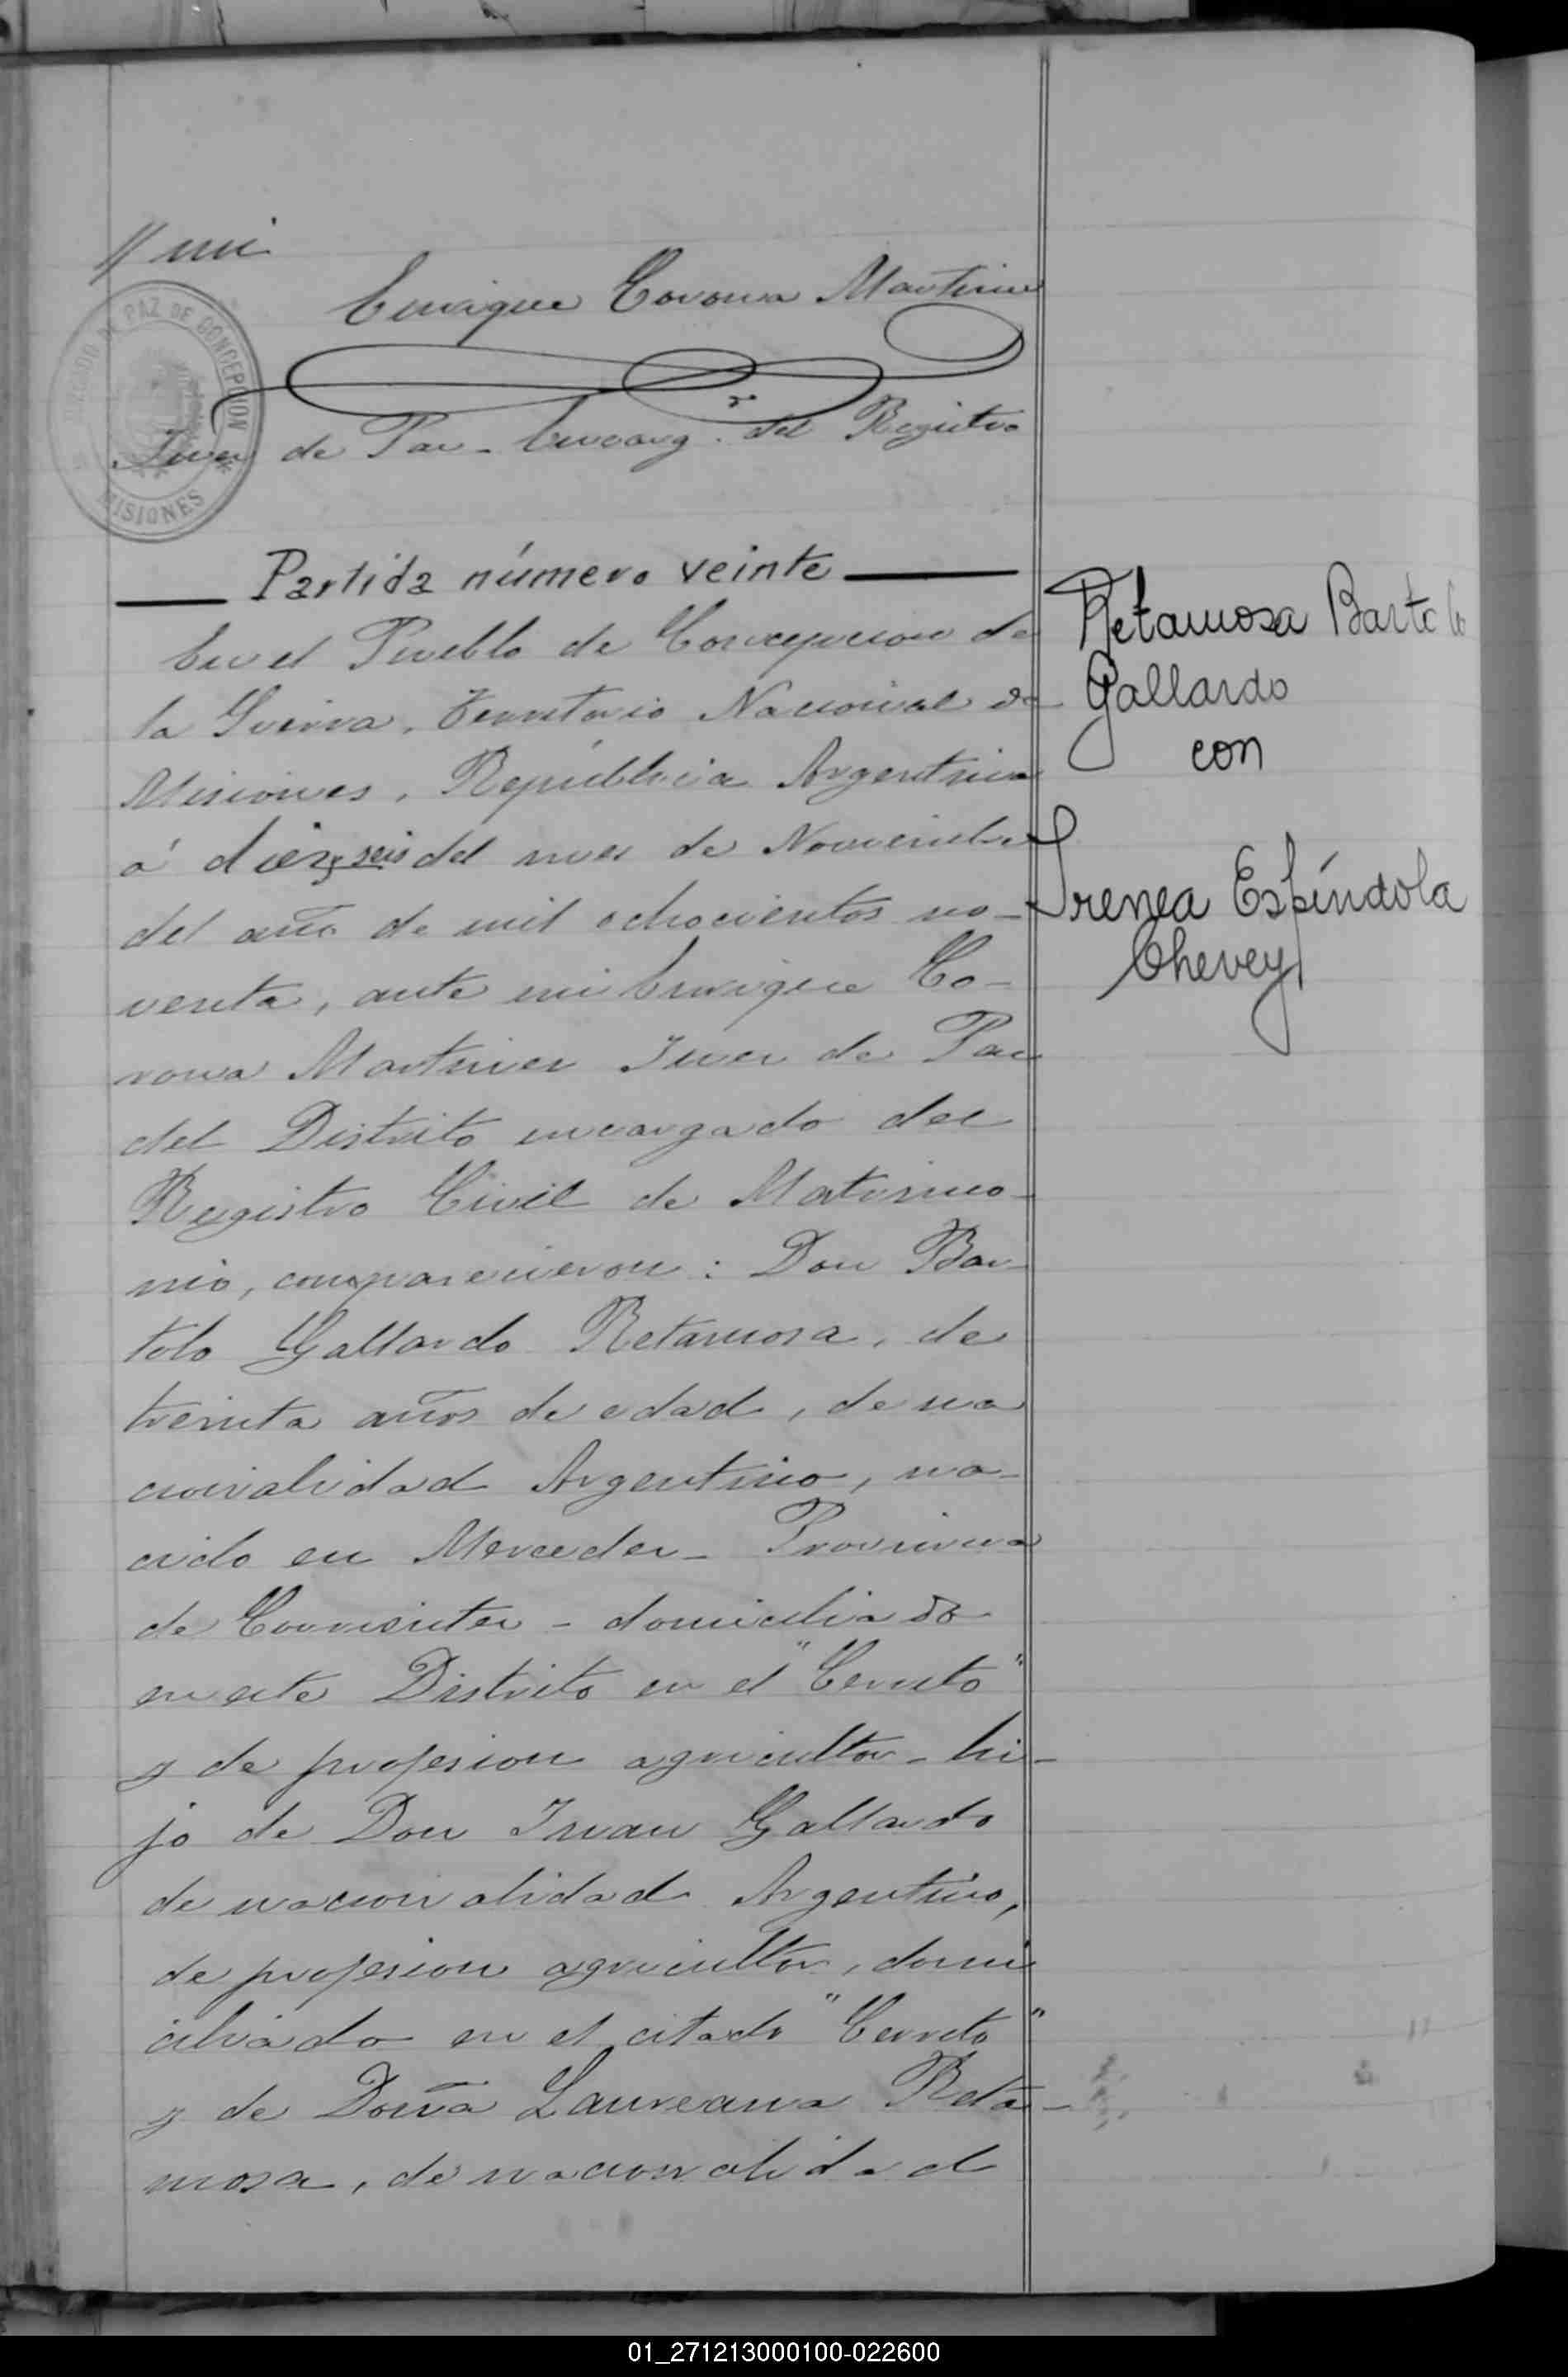 // mi
Enrique Corona Martinez
JUZGADO DE PAZ DE CONCEPCION
MISIONES
Juez de Paz - Encarg. del Registro
Partida número veinte
En el Pueblo de Concepcion de
la Sierra, Territorio Nacional de
Misiones, República Argentina
á diez y seis del mes de Noviembre
del año de mil ochocientos no-
venta, ante mi Enrique Co-
rona Martinez Juez de Paz
del Distrito encargado del
Registro Civil de Matrimo-
nio, comparecieron: Don Bar-
tolo Gallardo Retamosa, de
treinta años de edad, de na
cionalidad Argentino, na-
cido en Mercedes - Provincia
de Corrientes - domiciliado
en este Distrito en el "Cerrito"
y de profesion agricultor - hi-
jo de Don Juan Gallardo
de nacionalidad Argentino,
de profesion agricultor, domi
ciliado en el citado "Cerrito"
y de Doña Laureana Reta-
mosa, de nacionalidad
Retamosa Bartolo
Gallardo
con
Irenea Espíndola
Chevey
01_271213000100-022600